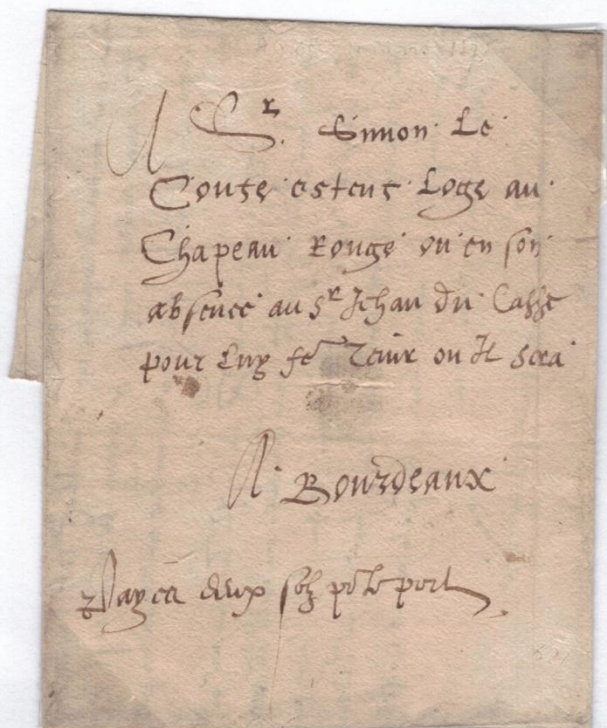 A Sr. Simon Le
Conte estent Logé au
Chapeau Rouge ou en son
absence au Sr Jehan du Casse
pour Luy fe tenir ou Il sera
A Bourdeaux
Payez deux solz pr le port